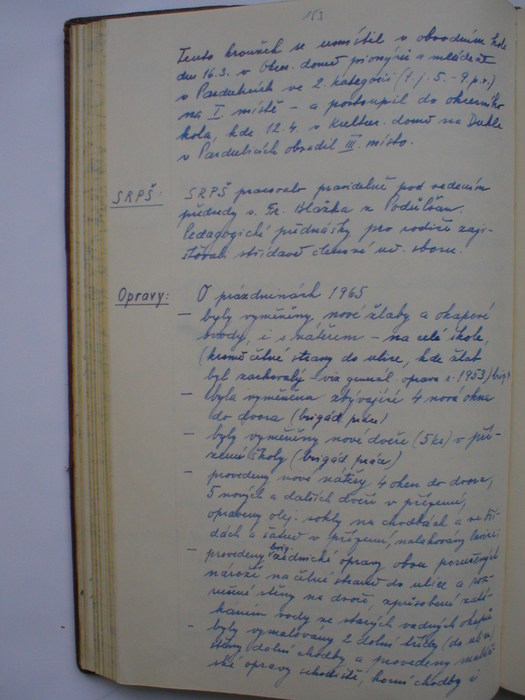 153
Tento kroužek se umístil v obvodním kole
dne 16.3. v Okr. domě pionýrů a mládeže
v Pardubicích ve 2. kategorii (t.j. 5.-9 p.r.)
na I. místě - a postoupil do okresního
kola, kde 12.4. v Kultur. domě na Dukle
v Pardubicích obsadil III. místo.
SRPŠ: SRPŠ pracovalo pravidelně pod vedením
předsedy s. Fr. Blažka z Podůlšan.
Pedagogické přednášky pro rodiče zaji-
šťovali střídavě členové uč. sboru.
Opravy: O prázdninách 1965
- byly vyměněny nové žlaby a okapové
svody, i s nátěrem - na celé škole,
(kromě čelné strany do ulice, kde žlab
byl zachovalý - viz generál. oprava r. 1953)
- byla vyměněna zbývající 4 nová okna
do dvora (brigád. práce)
- byly vyměněny nové dveře (5 ks) v pří-
zemí školy (brigád. práce)
- provedeny nové nátěry 4 oken do dvora,
5 nových a dalších dveří v přízemí,
opraveny olej. sokly na chodbách a ve tří-
dách a šaten v přízemí, nalakovány lavice
- provedeny brig. zednické opravy obou porušených
nároží, na čelné straně do ulice a
stěny na dvoře, způsobené zaté-
káním vody ze starých vadných okapů
- byly vymalovány 2 dolní třídy (do ulice)
stěny dolní chodby a provedeny malíř-
ské opravy schodiště, horní chodby a